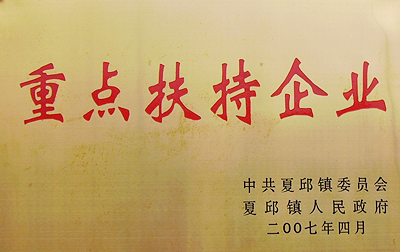 重点扶持企业
中共夏邱镇委员会
夏邱镇人民政府
二00七年四月